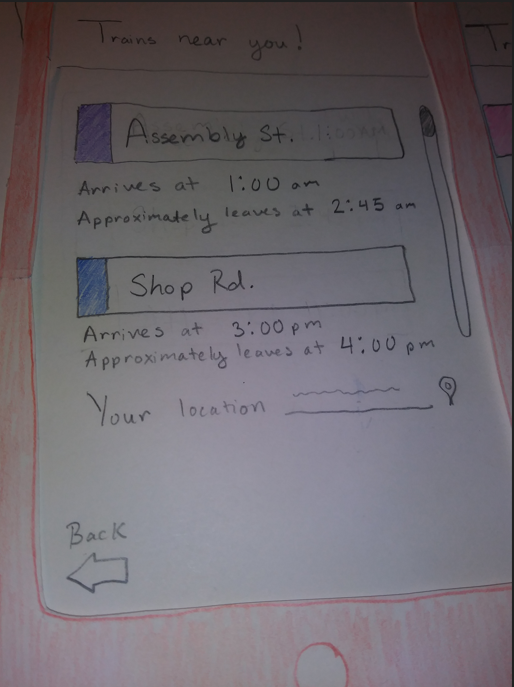 Trains near you!
Tr
Assembly St.
Arrives at 1:00 am
Approximately leaves at 2:45 am
Shop Rd.
Arrives at 3:00 pm
Approximately leaves at 4:00 pm
Your location
Back